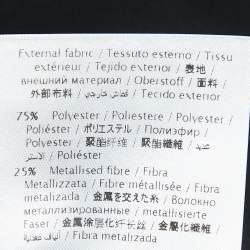 External fabric / Tessuto esterno / Tissu
extérieur / Tejido exterior / 表地 /
внешний материал / Oberstoff / 面料 /
外部布料 / قماش خارجي / Tecido exterior
75% Polyester / Poliestere / Polyester /
Poliéster / ポリエステル / Полиэфир /
Polyester / 聚酯纤维 / 聚酯纖維 /
/ Poliéster
25% Metallised fibre / Fibra
Metallizzata / Fibre métallisée / Fibra
metalizada / 金属を交えた糸 / Волокно
металлизированные / metallisierte
Faser / 金属涂层化纤长丝 / 金屬化纖維 /
/ Fibra metalizada